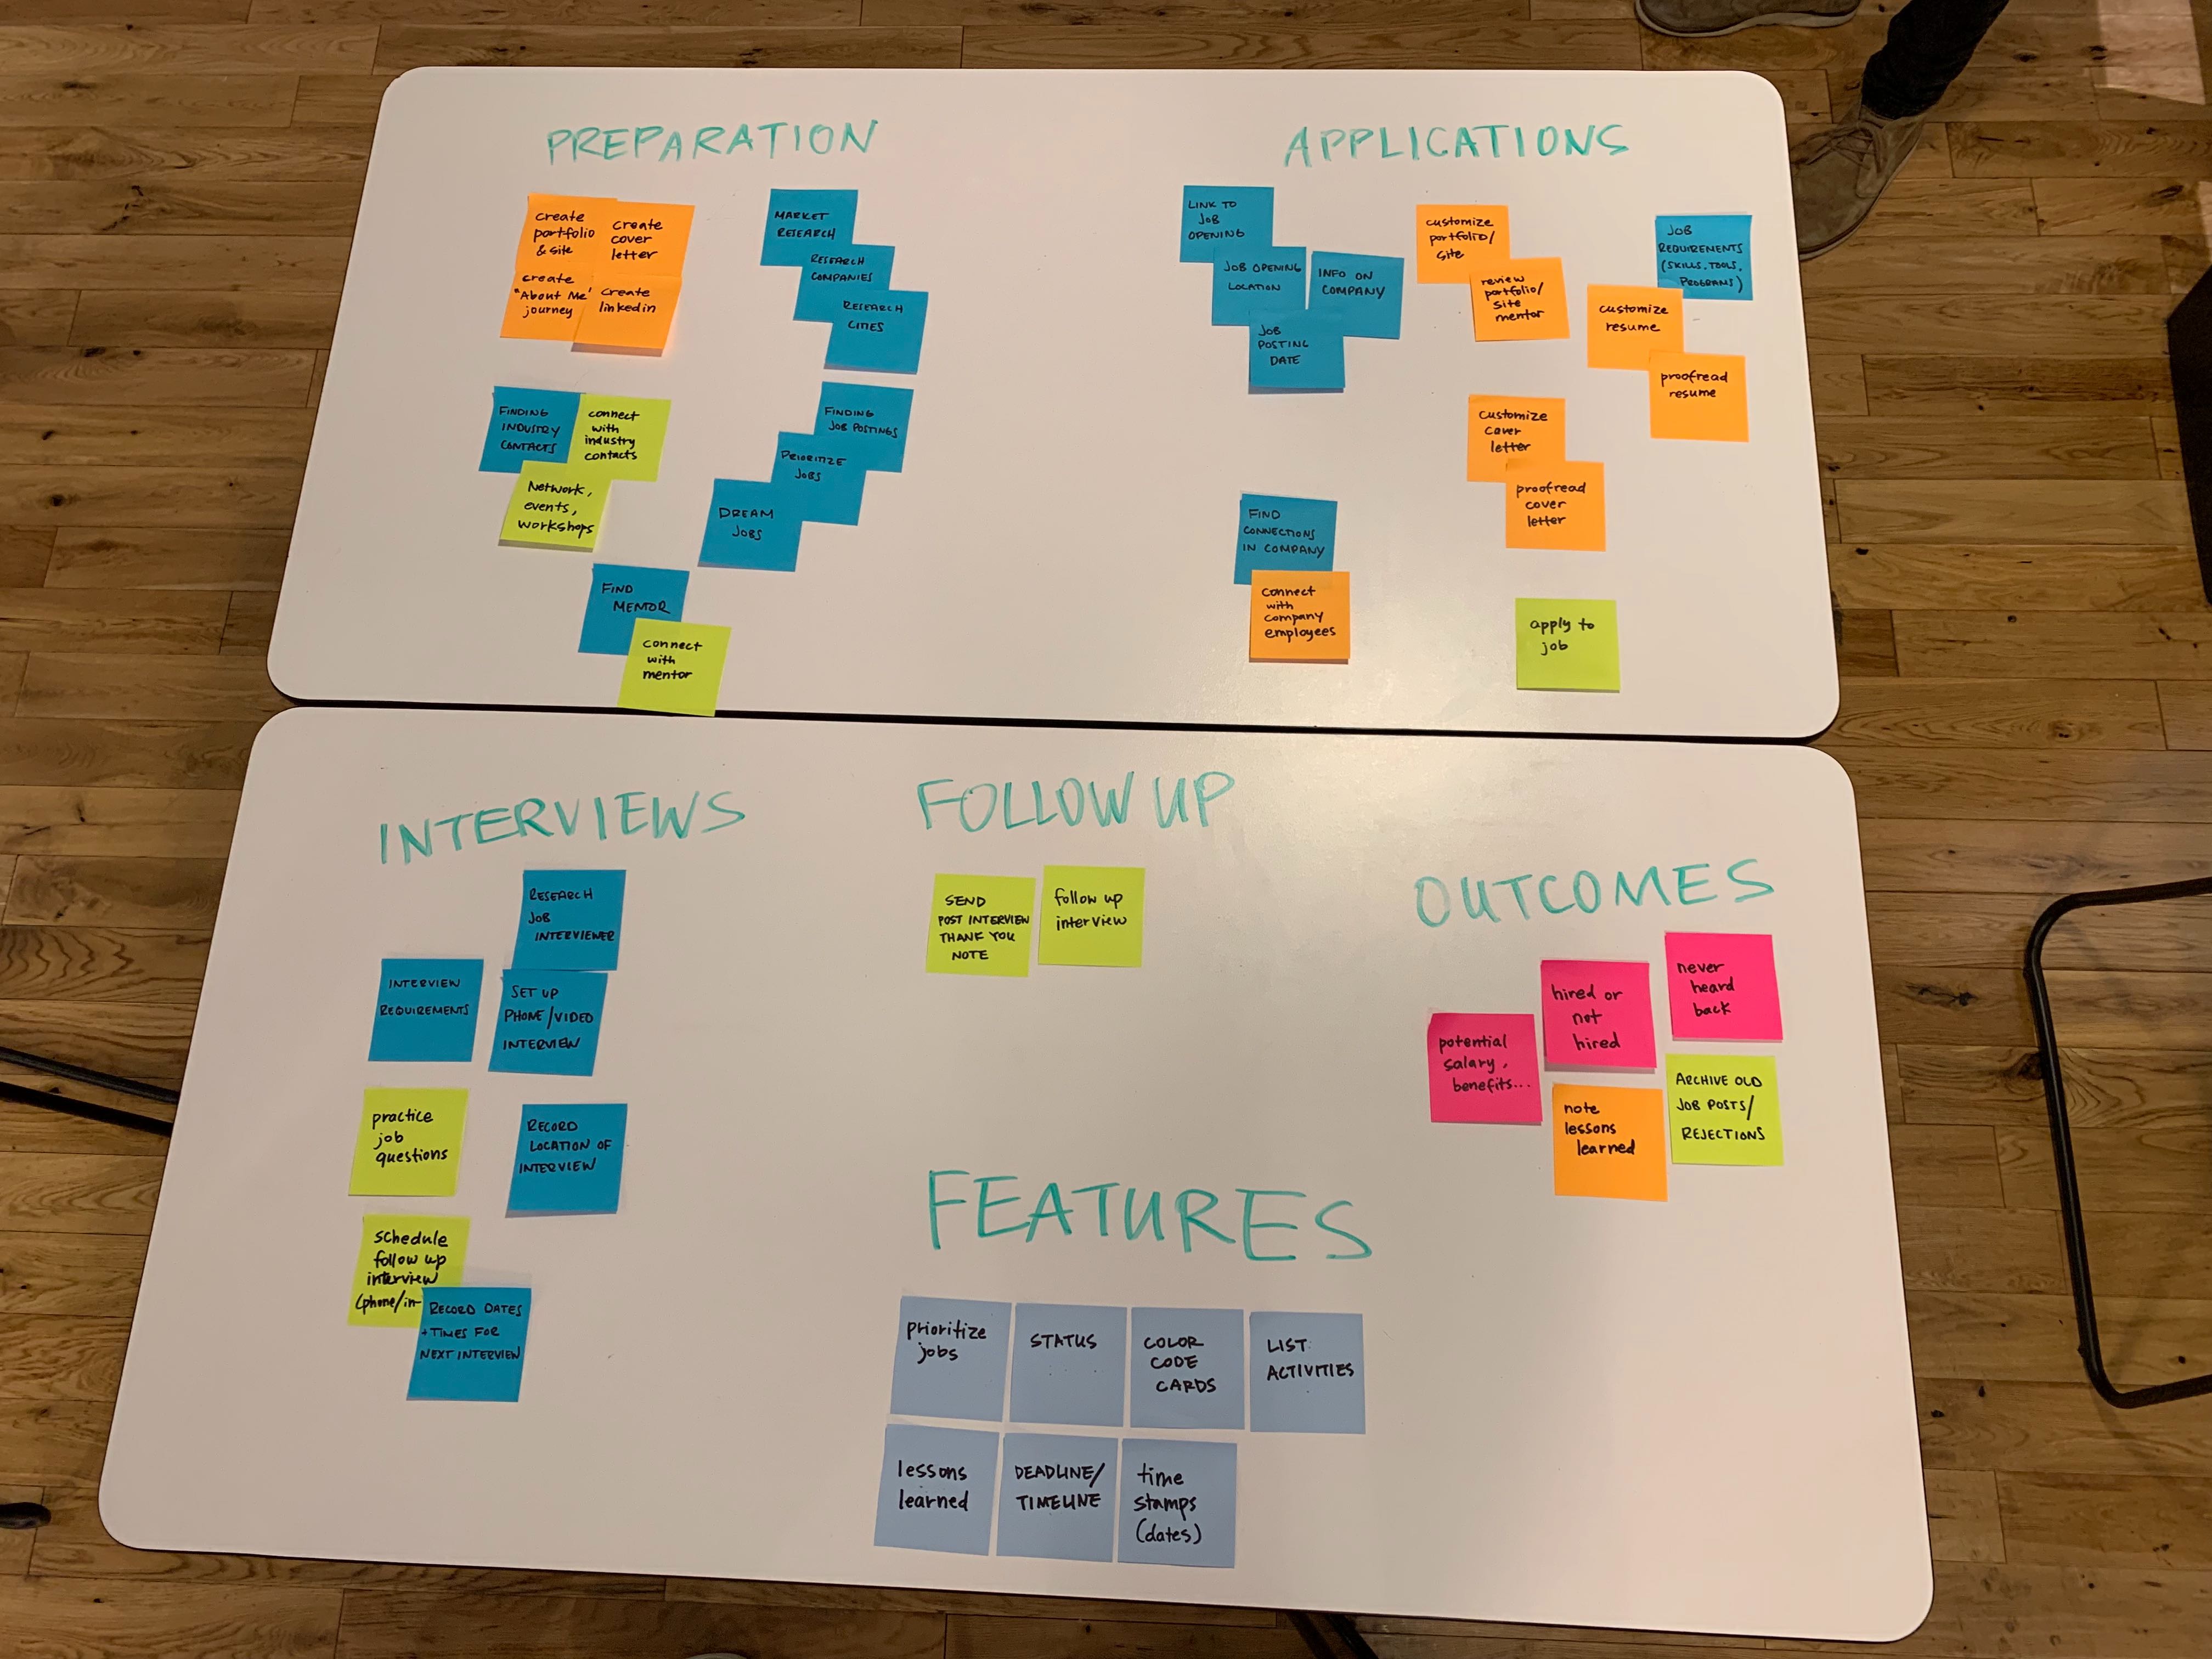 PREPARATION
create
portfolio
& site
create
cover
letter
create
"About Me"
journey
create
linkedin
MARKET
RESEARCH
RESEARCH
COMPANIES
RESEARCH
CITIES
FINDING
INDUSTRY
CONTACTS
connect
with
industry
contacts
Network,
events,
workshops
FINDING
JOB POSTINGS
PRIORITIZE
JOBS
DREAM
JOBS
FIND
MENTOR
connect
with
mentor
APPLICATIONS
LINK TO
JOB
OPENING
JOB OPENING
LOCATION
INFO ON
COMPANY
JOB
POSTING
DATE
customize
portfolio/
site
review
portfolio/
site
mentor
JOB
REQUIREMENTS
(SKILLS, TOOLS,
PROGRAMS)
customize
resume
proofread
resume
customize
cover
letter
proofread
cover
letter
FIND
CONNECTIONS
IN COMPANY
connect
with
company
employees
apply to
job
INTERVIEWS
RESEARCH
JOB
INTERVIEWER
INTERVIEW
REQUIREMENTS
SET UP
PHONE/VIDEO
INTERVIEW
practice
job
questions
RECORD
LOCATION OF
INTERVIEW
schedule
follow up
interview
(phone/in-
RECORD DATES
+ TIMES FOR
NEXT INTERVIEW
FOLLOW UP
SEND
POST INTERVIEW
THANK YOU
NOTE
follow up
interview
OUTCOMES
potential
salary,
benefits...
hired or
not
hired
never
heard
back
note
lessons
learned
ARCHIVE OLD
JOB POSTS/
REJECTIONS
FEATURES
prioritize
jobs
STATUS
COLOR
CODE
CARDS
LIST
ACTIVITIES
lessons
learned
DEADLINE/
TIMELINE
time
stamps
(dates)